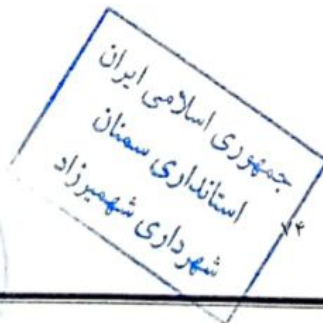 جمهوری اسلامی ایران
استانداری سمنان
شهرداری شهمیرزاد
۷۴